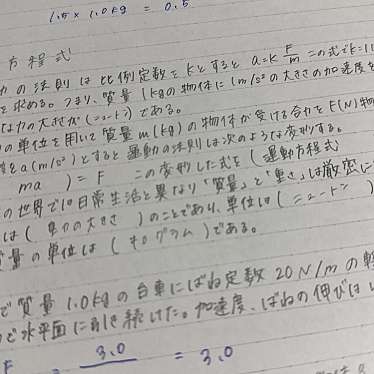 1.5 × 1.0 kg = 0.5
方程式
の法則は比例定数をkとするとa=k F/m この式でk=1
を求める。つまり、質量1kgの物体に1m/s²の大きさの加速度を
な力の大きさが(ニュートン)である。
の単位を用いて質量m(kg)の物体が受ける合力をF(N)物
をa(m/s²)とすると運動の法則は次のような変形する。
ma ) = F この変形した式を(運動方程式
の世界では日常生活と異なり「質量」と「重さ」は厳密に
は(重力の大きさ)のことであり、単位は(ニュートン)
質量の単位は(キログラム)である。
で質量1.0kgの台車にばね定数20N/mの軽
で水平面に引き続けた。加速度、ばねの伸びは
F = 3.0 = 3.0